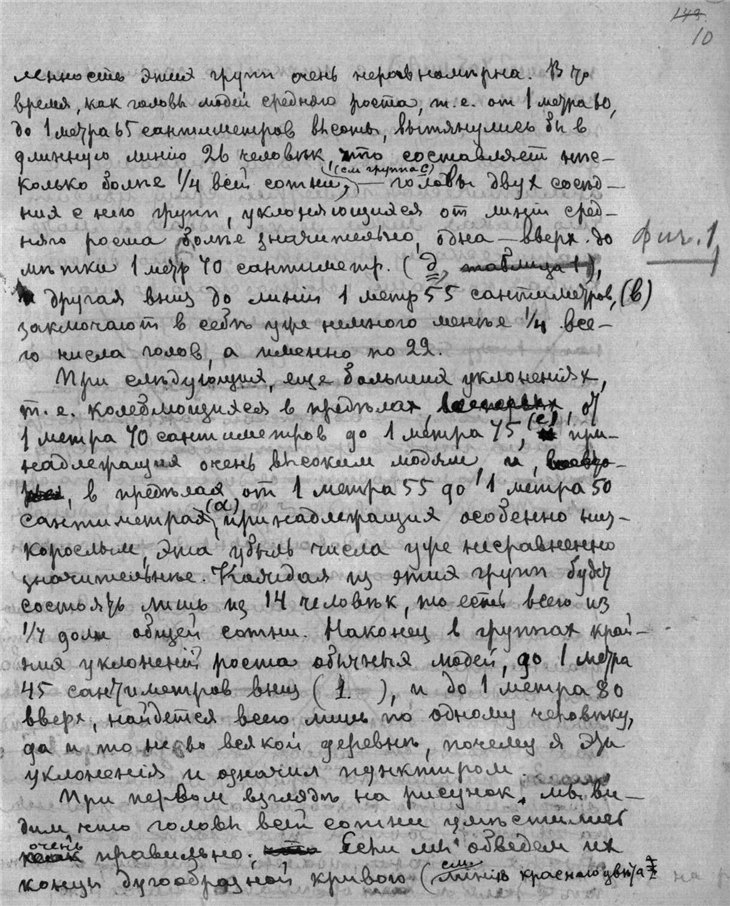 143.
10
менность этих групп очень неравномѣрна. В то
время, как головы людей средняго роста, т. е. от 1 метра 60,
до 1 метра 65 сантиметров высоты, вытянулись бы в
длинную линію 26 человѣк, что составляет нѣс-
колько болѣе 1/4 всей сотни, (см группа с) — головы двух сосѣд-
них с нею групп, уклоняющихся от линіи сред-
няго роста болѣе значительно, одна — вверх до
мѣтки 1 метр 70 сантиметр. (д, таблица 1),
другая вниз до линіи 1 метр 55 сантиметров, (в)
заключают в себѣ уже немного менѣе 1/4 все-
го числа голов, а именно по 22.
При слѣдующих, еще больших уклоненіях,
т. е. колеблющихся в предѣлах, вопервых, от
1 метра 70 сантиметров до 1 метра 75, (е) при-
надлежащих очень высоким людям, и,
в предѣлах от 1 метра 55 до 1 метра 50
сантиметрах (а) принадлежащих особенно низ-
корослым, эта убыль числа уже несравненно
значительнѣе. Каждая из этих групп будет
состоять лишь из 14 человѣк, то есть всего из
1/7 доли общей сотни. Наконец в группах край-
них уклоненій роста обычных людей, до 1 метра
45 сантиметров вниз (1 ), и до 1 метра 80
вверх, найдется всего лишь по одному человѣку,
да и то не во всякой деревнѣ, почему я эти
уклоненія и означил пунктиром.
При первом взглядѣ на рисунок, мы ви-
дим, что головы всей сотни умѣстились
очень правильно; Если мы обведем их
концы дугообразной кривою (см. линію краснаго цвѣта
фиг. 1